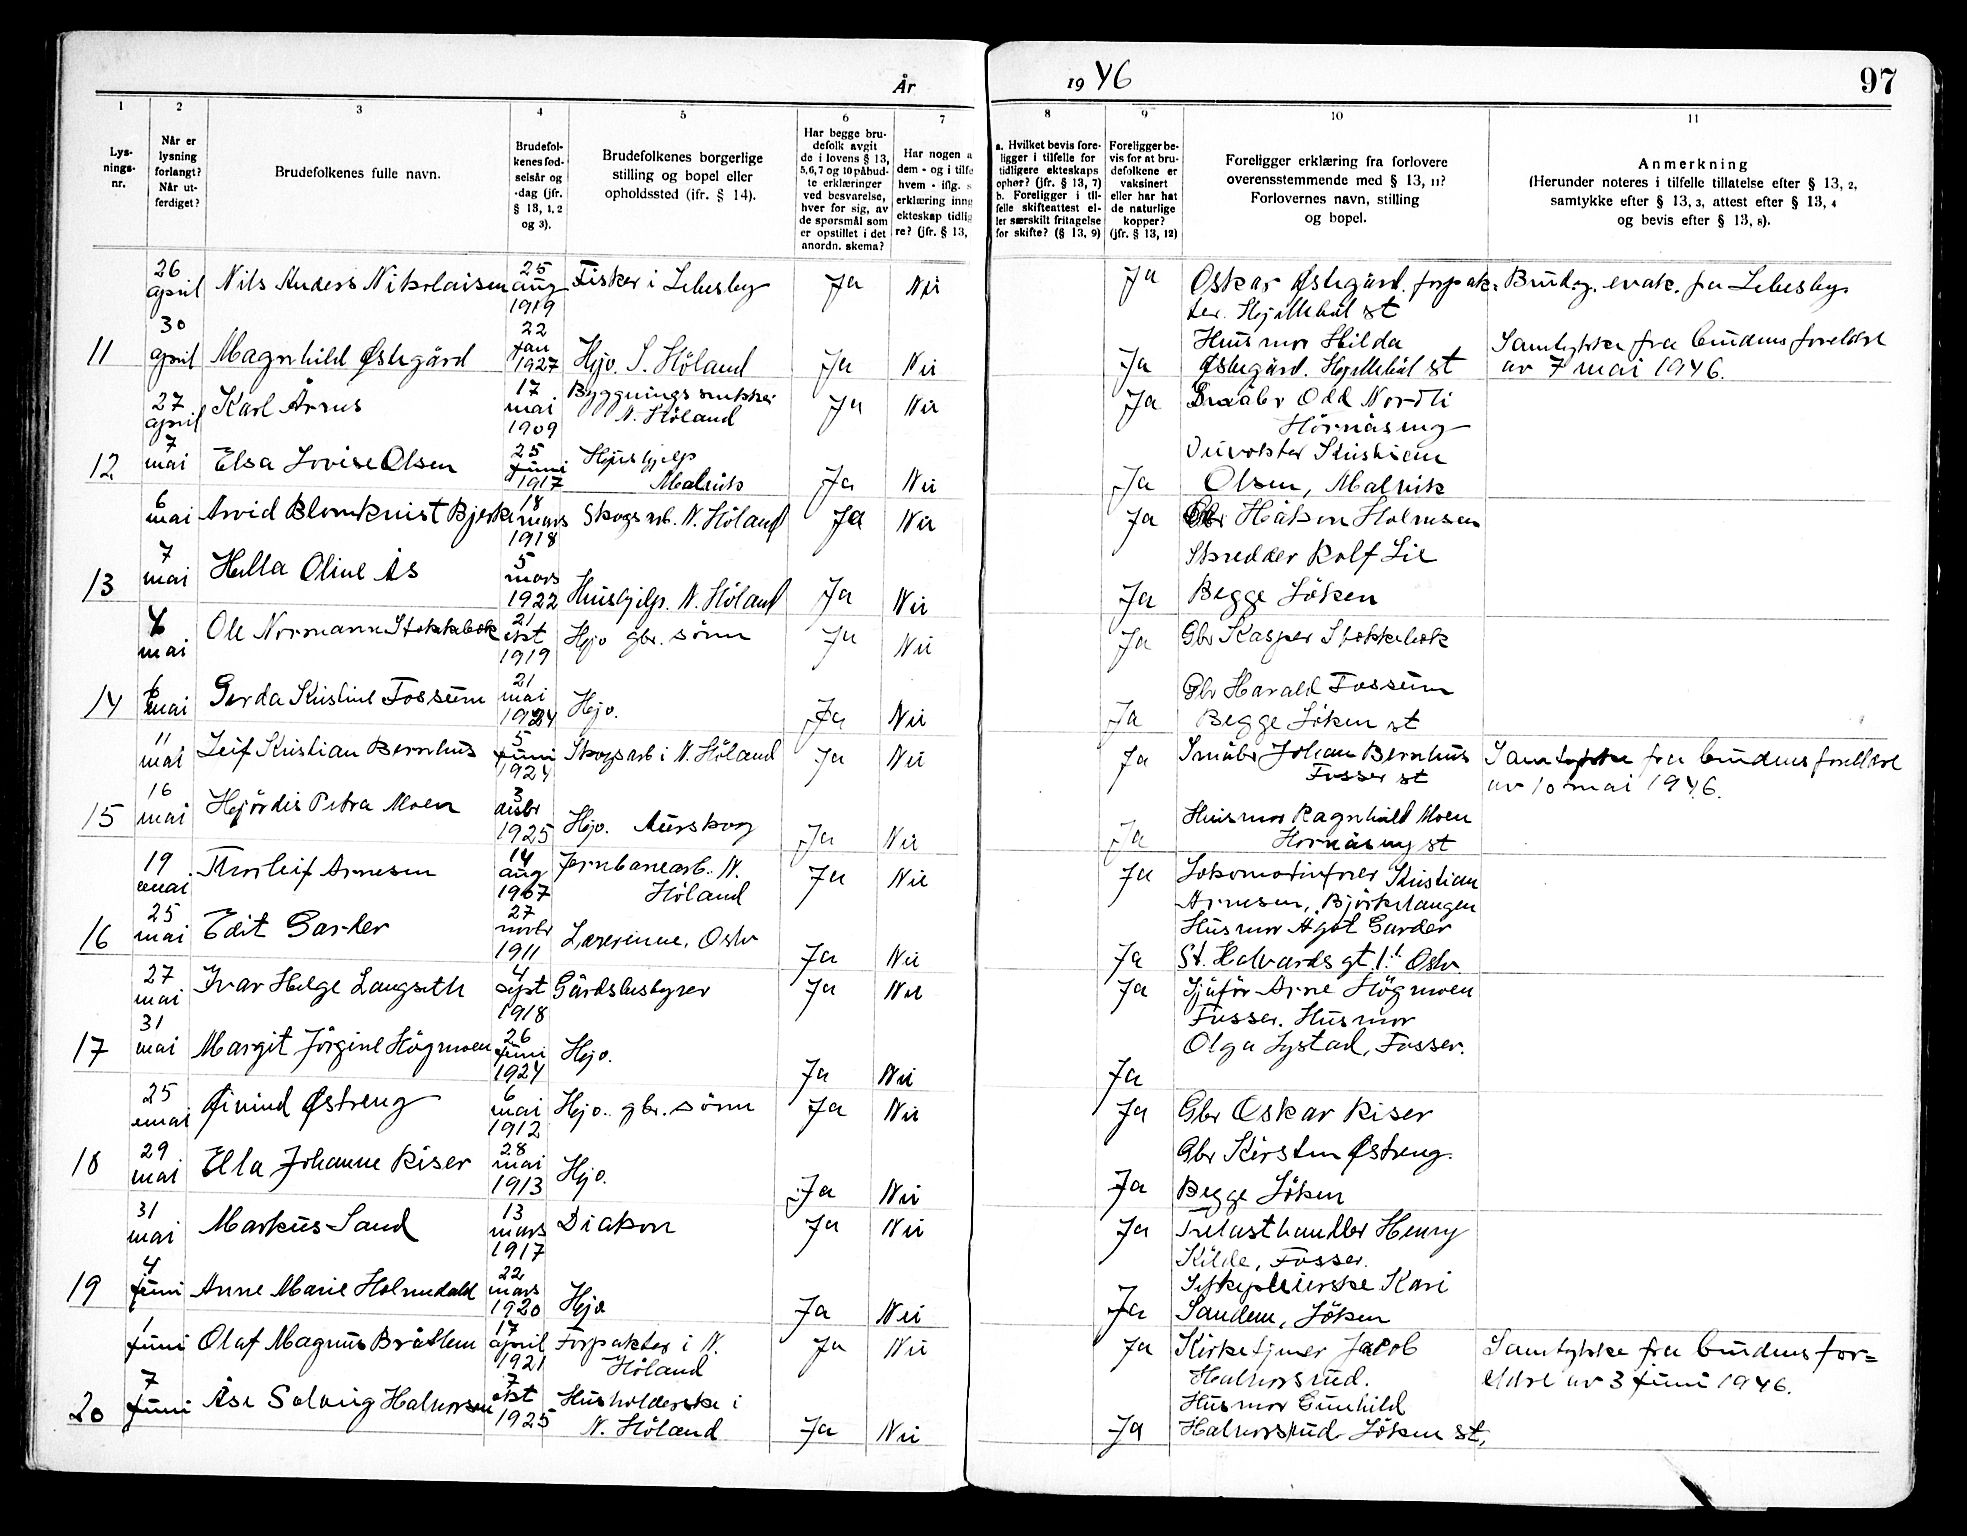 År 1946
97
1
2
3
4
5
6
7
8
9
10
11
Lys-
nings-
nr.
Når er
lysning
forlangt?
Når ut-
ferdiget?
Brudefolkenes fulle navn.
Brudefol-
kenes fød-
selsår og
-dag (jfr.
§ 13, 1, 2
og 3).
Brudefolkenes borgerlige
stilling og bopel eller
opholdssted (ifr. § 14).
Har begge bru-
defolk avgit
de i lovens § 13,
5,6,7 og 10 påbud-
te erklæringer
ved besvarelse,
hver for sig, av
de spørsmål som
er opstillet i det
anordn. skema?
Har nogen a
dem - og i tilfe
hvem - iflg. s
erklæring inng
ekteskap tidlig
re? (jfr. § 13,
a. Hvilket bevis fore-
ligger i tilfelle for
tidligere ekteskaps
ophør? (jfr. § 13, 7)
b. Foreligger i til-
felle skifteattest el-
ler særskilt fritagelse
for skifte? (§ 13, 9)
Foreligger be-
vis for at bru-
defolkene er
vaksinert
eller har hat
de naturlige
kopper?
(jfr. § 13, 12)
Foreligger erklæring fra forlovere
overensstemmende med § 13, 11?
Forlovernes navn, stilling
og bopel.
Anmerkning
(Herunder noteres i tilfelle tillatelse efter § 13, 2,
samtykke efter § 13, 3, attest efter § 13, 4
og bevis efter § 13, 8).
26
april
Nils Anders Nikolaisen
25
aug
1919
Fisker i Lebesby
Ja
Nei
Ja
Oskar Østegård. forpak-
ter. Hjellebøl st
Brudeg. evak. fra Lebesby
11
30
april
Magnhild Østegård
22
jan
1927
Hjv. S. Höland
Ja
Nei
Ja
Husmor Hilda
Østegård. Hjellebøl st
Samtykke fra brudens foreldre
av 7 mai 1946.
27
april
Karl Årnes
17
mai
1909
Byggningssnekker
N. Höland
Ja
Nei
Ja
Småbr Odd Nordli
Hörnåseng
12
7
mai
Elsa Lovise Olsen
25
juni
1917
Hushjelp
Malvik
Ja
Nei
Ja
Kristian
Olsen, Malvik
6
mai
Arvid Blomkvist Bjerk
18
mars
1918
Skogsarb. N. Höland
Ja
Nei
Ja
Gbr Håkon Holmsen
13
7
mai
Hella Oline Ås
5
mars
1922
Hushjelp. N. Höland
Ja
Nei
Ja
Skredder Rolf Lie
Begge Löken
6
mai
Ole Normann Stokkebæk
21
okt
1919
Hjv gbr. sönn
Ja
Nei
Ja
Gbr Kasper Stokkebæk
14
6
mai
Gerda Kristine Fossum
21
mai
1924
Hjv.
Ja
Nei
Ja
Gbr Harald Fossum
Begge Löken st
11
mai
Leif Kristian Bernhus
5
juni
1924
Skogsarb i N. Höland
Ja
Nei
Ja
Småbr Johan Bernhus
Fosser st
Samtykke fra brudens foreldre
av 10 mai 1946.
15
16
mai
Hjördis Petra Moen
3
desbr
1925
Hjv. Aurskog
Ja
Nei
Ja
Husmor Ragnhild Moen
Hornåseng st
19
mai
Thorleif Arnesen
14
aug
1907
Jernbanearb. N.
Höland
Ja
Nei
Ja
Lokomotivfører Kristian
Arnesen, Björkelangen
16
25
mai
Edit Garder
27
novbr
1911
Lærerinne, Oslo
Ja
Nei
Ja
Husmor Ågot Garder
St. Halvards gt. Oslo
27
mai
Ivar Helge Langseth
4
sept
1918
Gårdsbestyrer
Ja
Nei
Ja
Sjåför Arne Högmoen
Fosser. Husmor
17
31
mai
Margit Jörgine Högmoen
26
juni
1924
Hjv.
Ja
Nei
Ja
Olga Lystad, Fosser.
25
mai
Øivind Østreng
6
mai
1912
Hjv. gbr. sönn
Ja
Nei
Ja
Gbr Oskar Riser
18
29
mai
Ella Johanne Riser
28
mai
1913
Hjv.
Ja
Nei
Ja
Gbr Kirsten Østreng.
Begge Löken
31
mai
Markus Sand
13
mars
1917
Diakon
Ja
Nei
Ja
Trelasthandler Henry
Kilde, Fosser.
19
4
juni
Anne Marie Holmedald
22
mars
1920
Hjv
Ja
Nei
Ja
Sykepleierske Kari
Sandem, Löken
1
juni
Olaf Magnus Bråtlem
17
april
1921
Forpakter i N.
Höland
Ja
Nei
Ja
Kirketjener Jacob
Halvorsrud.
Samtykke fra brudens for=
eldre av 3 juni 1946.
20
7
juni
Åse Solveig Halvorsen
7
okt
1925
Husholderske i
N. Höland
Ja
Nei
Ja
Husmor Gunhild
Halvorsrud Löken st.